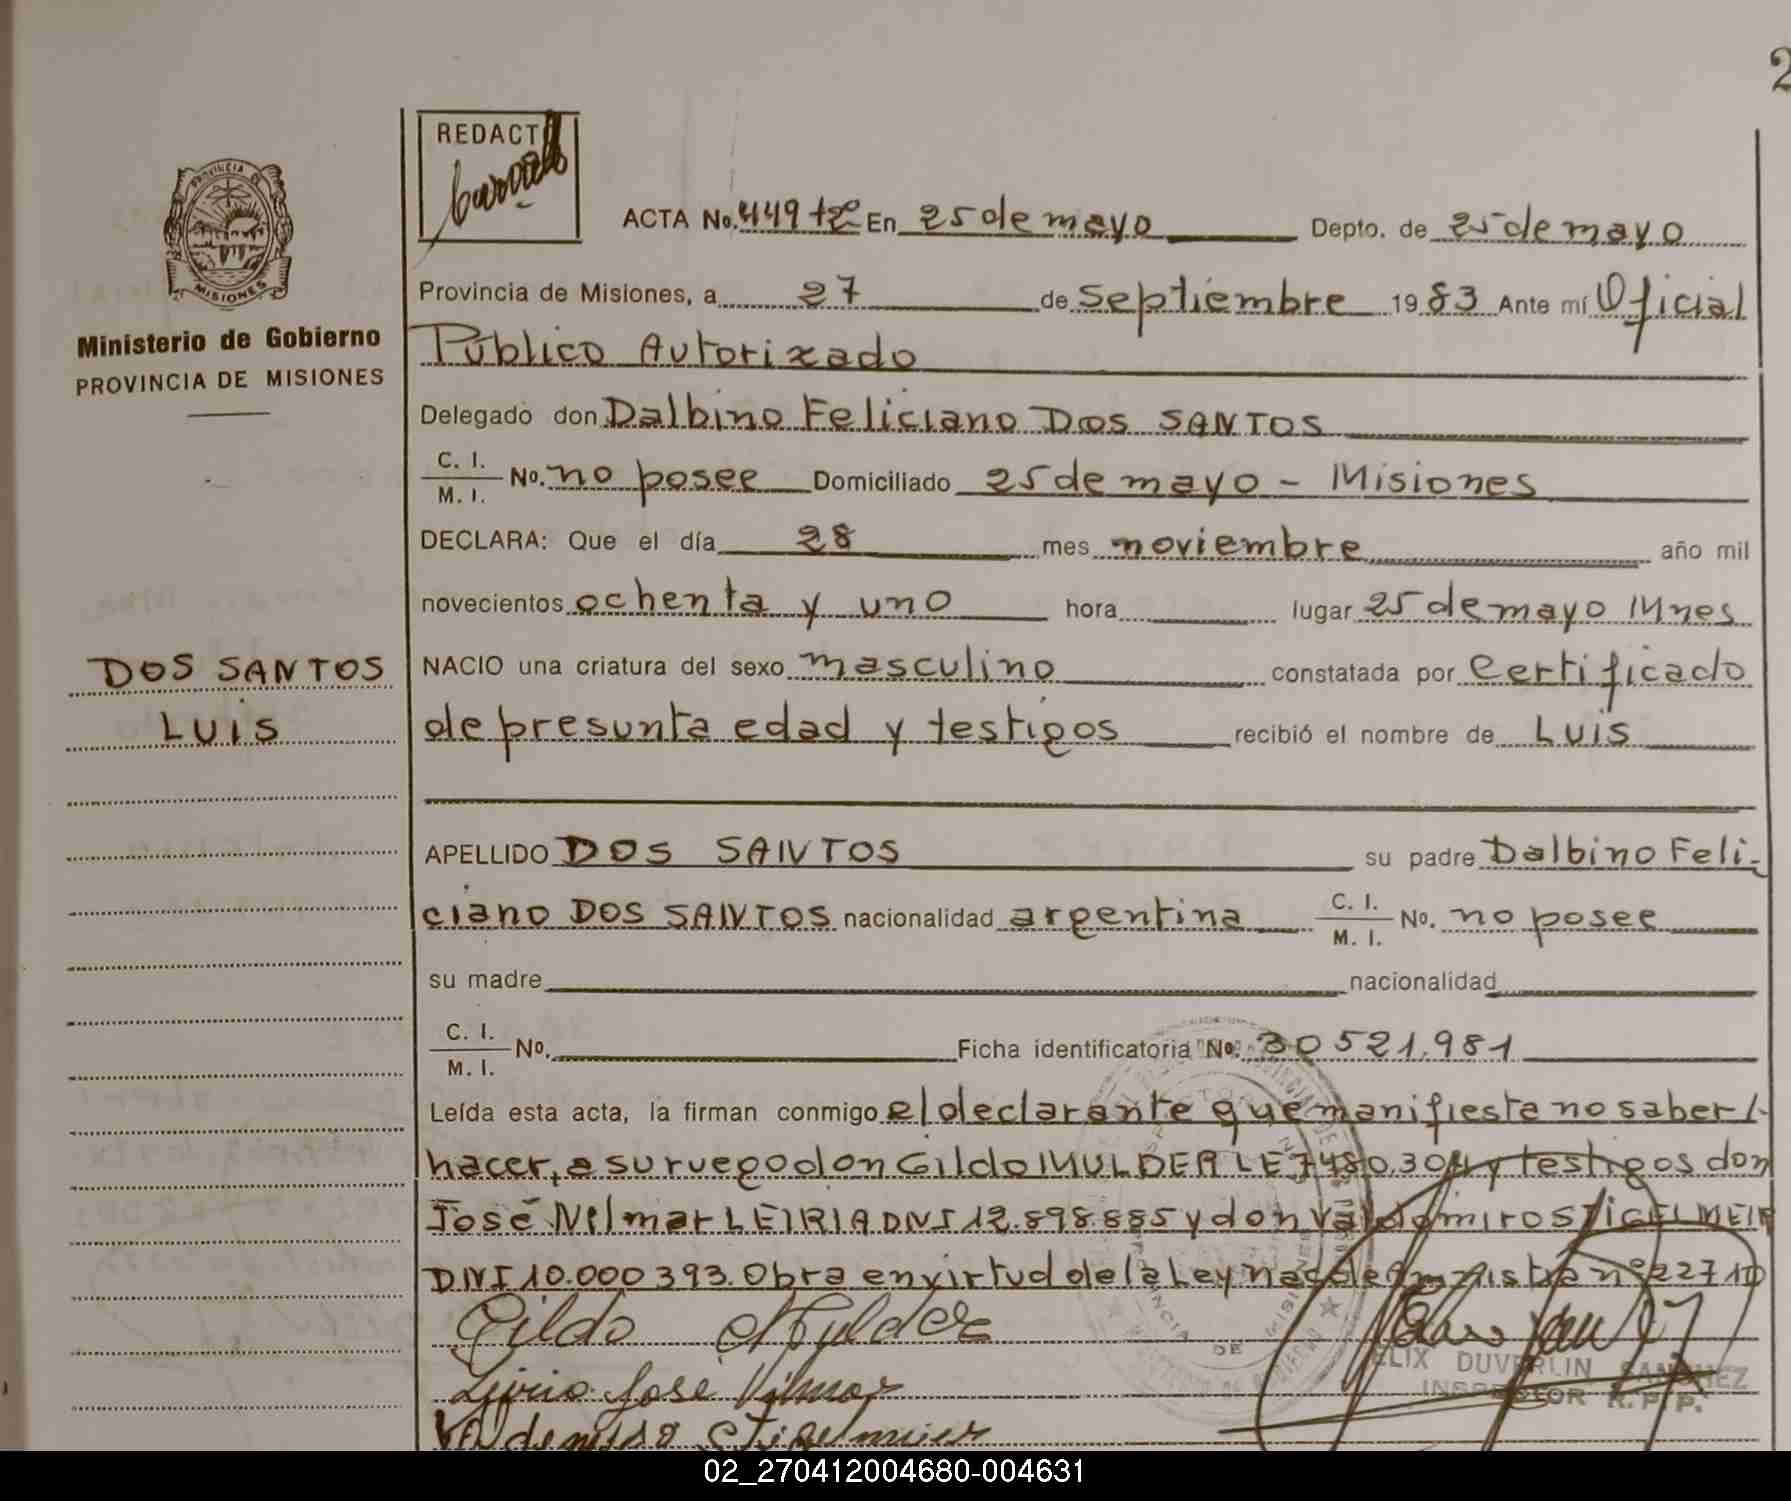 2
REDACT
PROVINCIA DE
MISIONES
ACTA No. 449 tº En 25 de mayo Depto. de 25 de mayo
Provincia de Misiones, a 27 de septiembre 1983 Ante mí Oficial
Público Autorizado
Ministerio de Gobierno
PROVINCIA DE MISIONES
Delegado don Dalbino Feliciano Dos SANTOS
C. I.
M. I. No. no posee Domiciliado 25 de mayo - Misiones
DECLARA: Que el día 28 mes noviembre año mil
novecientos ochenta y uno hora lugar 25 de mayo Mnes
DOS SANTOS
LUIS
NACIO una criatura del sexo masculino constatada por Certificado
de presunta edad y testigos recibió el nombre de LUIS
APELLIDO DOS SANTOS su padre Dalbino Feli-
ciano DOS SANTOS nacionalidad argentina C. I.
M. I. No. no posee
su madre nacionalidad
C. I.
M. I. No. Ficha identificatoria No. 30521.981
Leída esta acta, la firman conmigo el declarante que manifiesta no saber
hacer, a su ruego don Gildo MULDER LE 7480.304 y testigos don
José Nilmar LEIRIA DNI 12.898.885 y don Valdomiro STIGELMEIR
DNI 10.000393. Obra en virtud de la Ley nac de Amnistia nº 22710
Gildo Mulder
José Vilmar
Stigelmier
FELIX DUVERLIN SANCHEZ
INSPECTOR R.P.P.
02_270412004680-004631